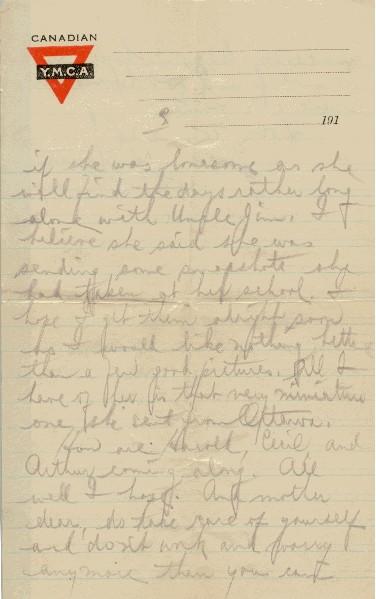 CANADIAN
Y.M.C.A.
3
191
if she was lonesome as she
will find the days rather long
alone with Uncle Jim. I
believe she said she was
sending some snapshots she
had taken at her school. I
hope I get them alright soon
as I would like nothing better
than a few good pictures. All I
have of her is that very miniature
one she sent from Ottawa.
How are Harold, Cecil, and
Arthur coming along. All
well I hope. And mother
dear, do take care of yourself
and don't work and worry
anymore than you can't